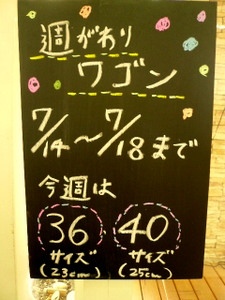 週がわり
ワゴン
7/14〜7/18まで
今週は
36 40
サイズ サイズ
(23cm) (25cm)